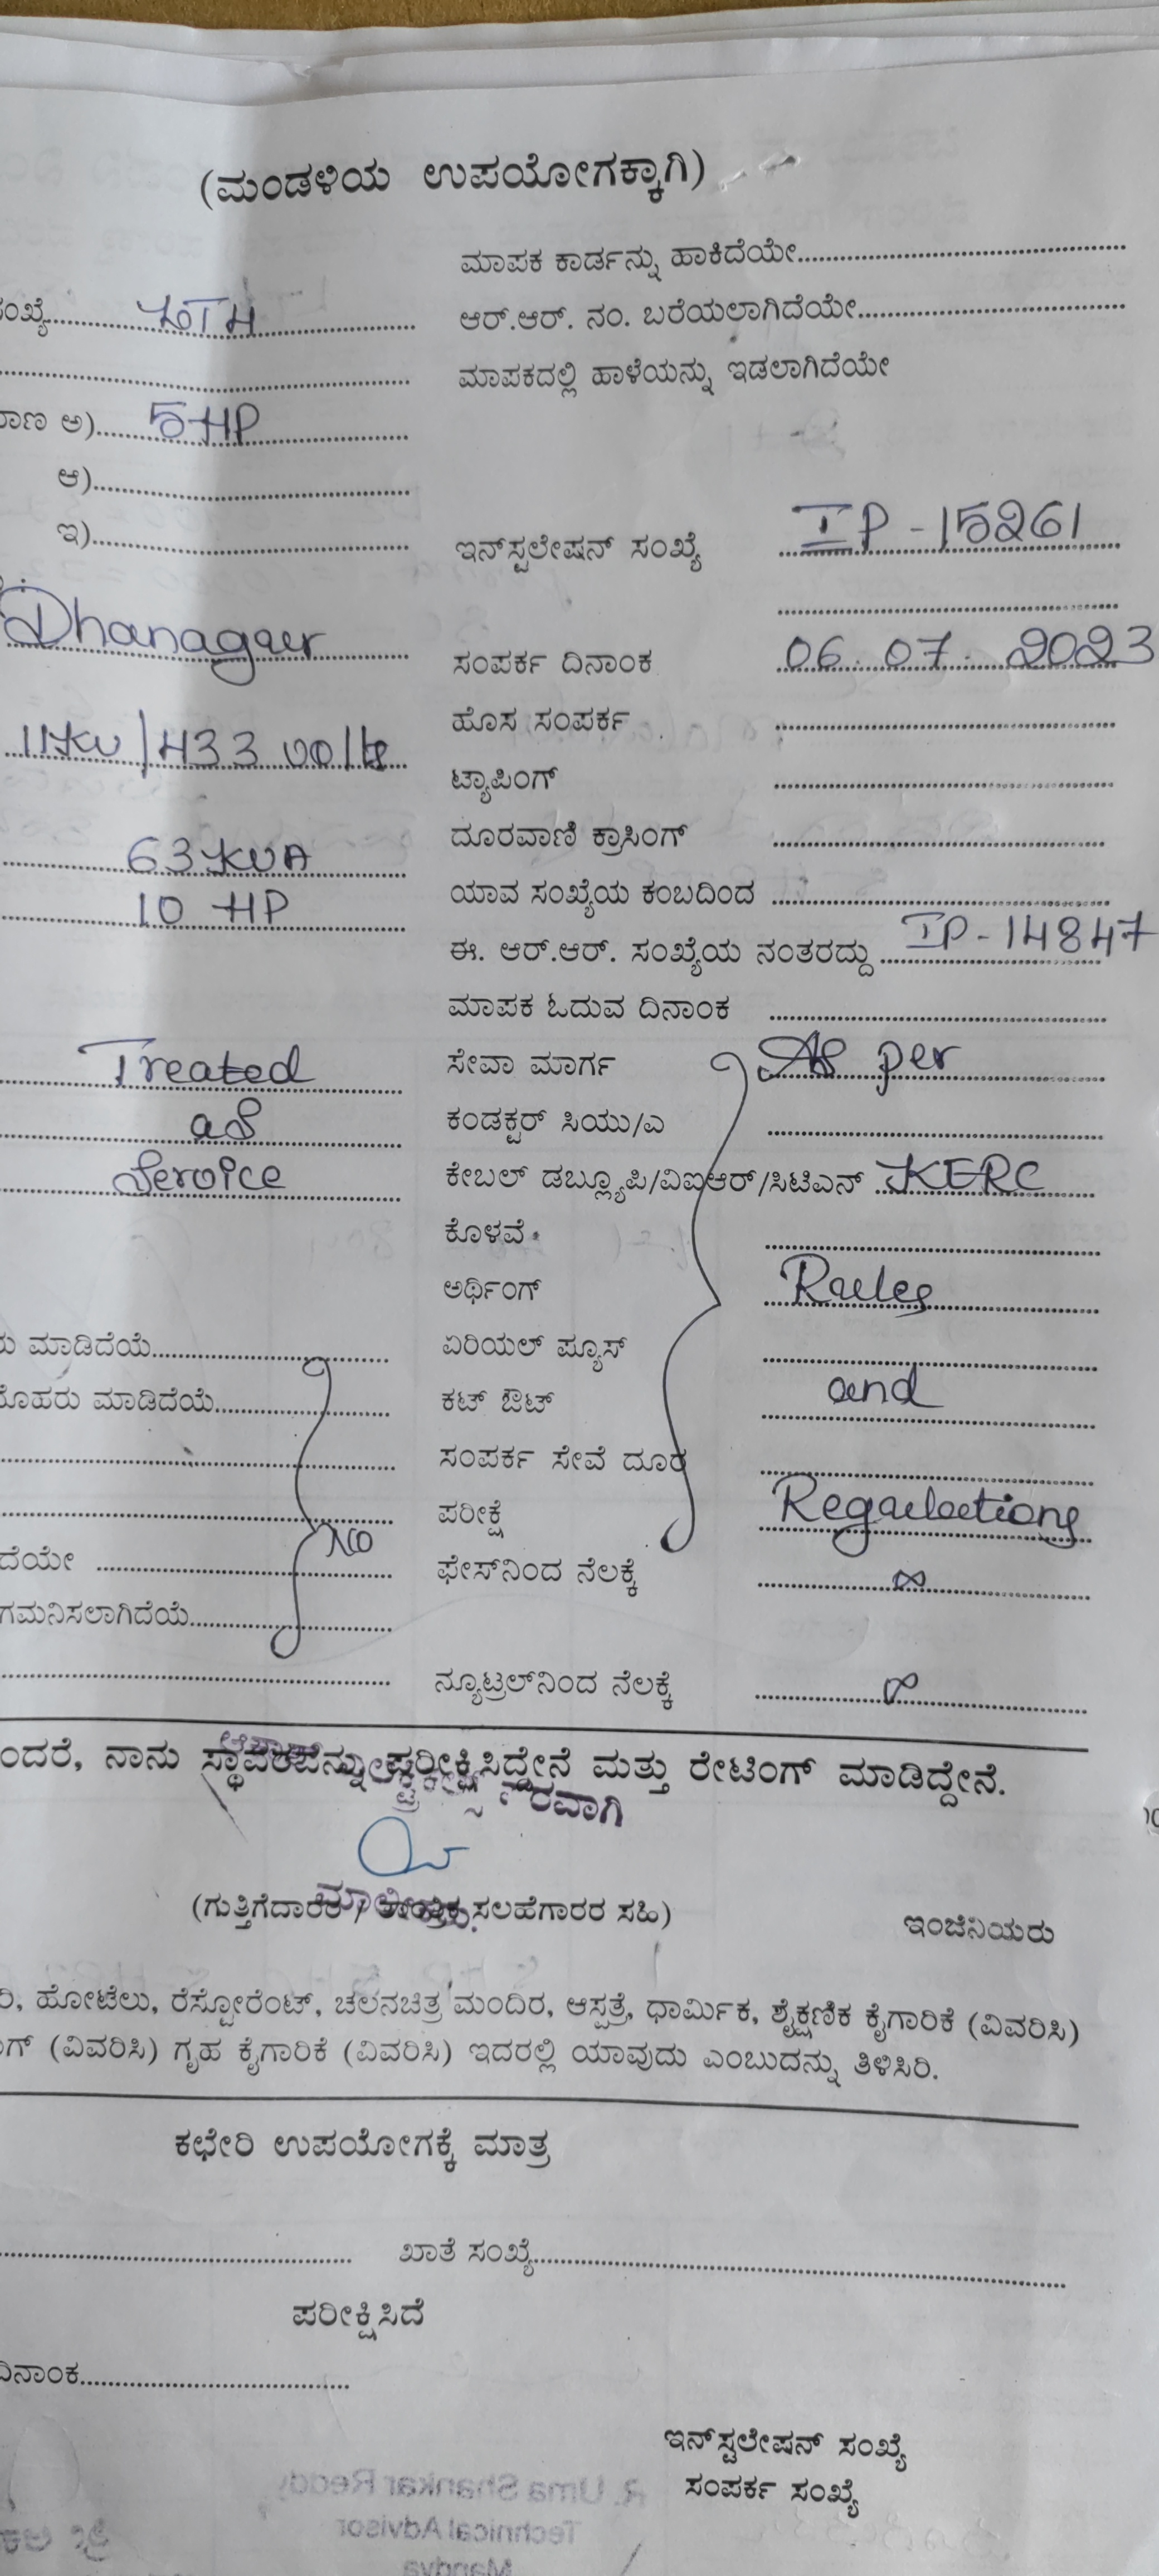 (ಮಂಡಳಿಯ ಉಪಯೋಗಕ್ಕಾಗಿ)
ಮಾಪಕ ಕಾರ್ಡನ್ನು ಹಾಕಿದೆಯೇ
ಸಂಖ್ಯೆ ಆರ್.ಆರ್. ನಂ. ಬರೆಯಲಾಗಿದೆಯೇ
ಮಾಪಕದಲ್ಲಿ ಹಾಳೆಯನ್ನು ಇಡಲಾಗಿದೆಯೇ
ಅ) 5HP
ಆ)
ಇ) ಇನ್‌ಸ್ಟಲೇಷನ್ ಸಂಖ್ಯೆ IP-15261
Dhanagaur ಸಂಪರ್ಕ ದಿನಾಂಕ 06.07.2023
ಹೊಸ ಸಂಪರ್ಕ
11KV/433 volt ಟ್ಯಾಪಿಂಗ್
ದೂರವಾಣಿ ಕ್ರಾಸಿಂಗ್
63KVA ಯಾವ ಸಂಖ್ಯೆಯ ಕಂಬದಿಂದ
10 HP ಈ. ಆರ್.ಆರ್. ಸಂಖ್ಯೆಯ ನಂತರದ್ದು IP-14847
ಮಾಪಕ ಓದುವ ದಿನಾಂಕ
Treated ಸೇವಾ ಮಾರ್ಗ As per
as ಕಂಡಕ್ಟರ್ ಸಿಯು/ಎ
Service ಕೇಬಲ್ ಡಬ್ಲ್ಯೂಪಿ/ವಿಐಆರ್/ಸಿಟಿಎನ್ KERC
ಕೊಳವೆ
ಅರ್ಥಿಂಗ್ Rules
ಮಾಡಿದೆಯೆ ಏರಿಯಲ್ ಫ್ಯೂಸ್
ಮೊಹರು ಮಾಡಿದೆಯೆ ಕಟ್ ಔಟ್ and
ಸಂಪರ್ಕ ಸೇವೆ ದೂರ
No ಪರೀಕ್ಷೆ Regulations
ದೆಯೇ ಫೇಸ್‌ನಿಂದ ನೆಲಕ್ಕೆ ∞
ಗಮನಿಸಲಾಗಿದೆಯೆ
ನ್ಯೂಟ್ರಲ್‌ನಿಂದ ನೆಲಕ್ಕೆ ∞
ಂದರೆ, ನಾನು ಸ್ಥಾವರವನ್ನು ಪರೀಕ್ಷಿಸಿದ್ದೇನೆ ಮತ್ತು ರೇಟಿಂಗ್ ಮಾಡಿದ್ದೇನೆ.
ಪರವಾಗಿ
(ಗುತ್ತಿಗೆದಾರರ / ತಾಂತ್ರಿಕ ಸಲಹೆಗಾರರ ಸಹಿ) ಇಂಜಿನಿಯರು
ರಿ, ಹೋಟೆಲು, ರೆಸ್ಟೋರೆಂಟ್, ಚಲನಚಿತ್ರ ಮಂದಿರ, ಆಸ್ಪತ್ರೆ, ಧಾರ್ಮಿಕ, ಶೈಕ್ಷಣಿಕ ಕೈಗಾರಿಕೆ (ವಿವರಿಸಿ)
ಗ್ (ವಿವರಿಸಿ) ಗೃಹ ಕೈಗಾರಿಕೆ (ವಿವರಿಸಿ) ಇದರಲ್ಲಿ ಯಾವುದು ಎಂಬುದನ್ನು ತಿಳಿಸಿರಿ.
ಕಛೇರಿ ಉಪಯೋಗಕ್ಕೆ ಮಾತ್ರ
ಖಾತೆ ಸಂಖ್ಯೆ
ಪರೀಕ್ಷಿಸಿದೆ
ದಿನಾಂಕ
ಇನ್‌ಸ್ಟಲೇಷನ್ ಸಂಖ್ಯೆ
ಸಂಪರ್ಕ ಸಂಖ್ಯೆ
R. Uma Shankar Reddy
Technical Advisor
Mandya